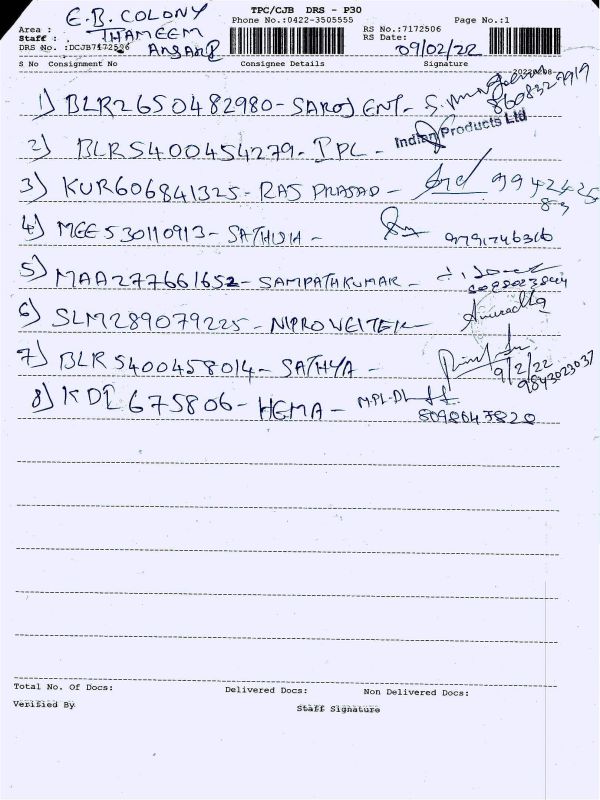 TPC/CJB DRS - P30
Phone No.:0422-3505555 Page No.:1
Area : E.B. COLONY
Staff : THAMEEM
RS No.:7172506
RS Date: 09/02/22
DRS No. :DCJB7172506
S No Consignment No Consignee Details Signature
1) BLR2650482980 - SAROJ ENT - 8608327919
2) BLR5400454279 - IPL - Indian Products Ltd
3) KUR606841325 - RAS PRASAD - 9942425
4) MEE530110913 - 9791746316
5) MAA277661652 - SAMPATHKUMAR -
6) SLM289079225 - NIPRO WELTEK Anuradha
7) BLR5400458014 - SATHYA - 9/2/22 9843023037
8) KDL675806 - HEMA - MPL-DL
Total No. Of Docs: Delivered Docs: Non Delivered Docs:
Verified By Staff Signature